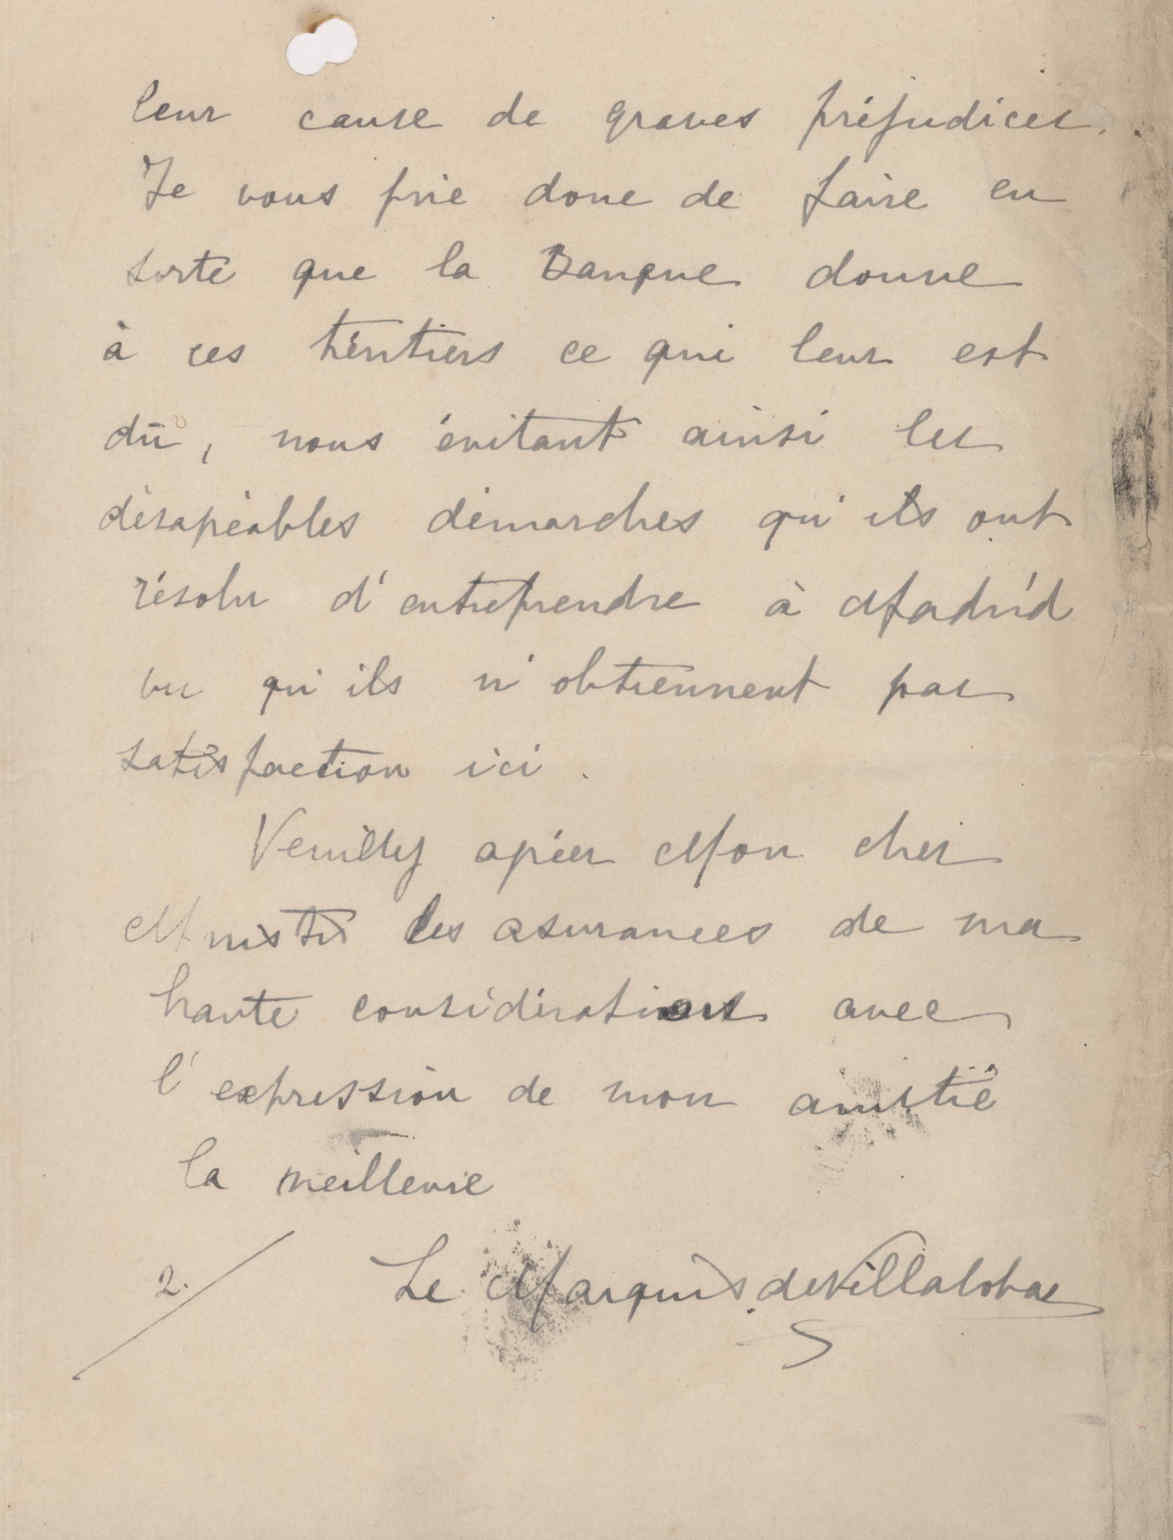 leur cause de graves préjudices.
Je vous prie donc de faire en
sorte que la Banque donne
à ces héritiers ce qui leur est
dû, nous évitant ainsi les
désagréables démarches qu'ils ont
résolu d'entreprendre à Madrid
vu qu'ils n'obtiennent pas
satisfaction ici.
Veuillez agréer Mon cher
Ministre les assurances de ma
haute considération avec
l'expression de mon amitié
la meilleure
2. Le Marquis de Villalobar